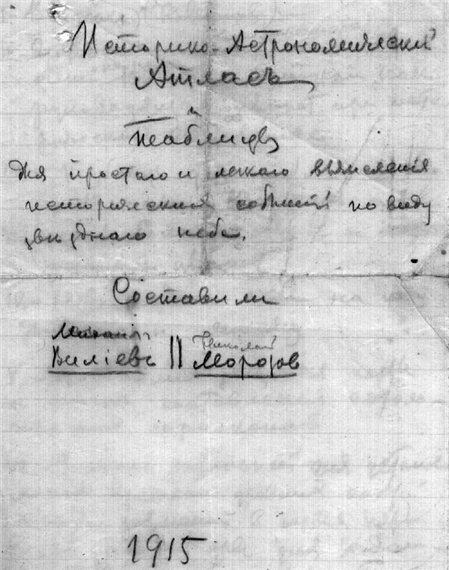 Историко-Астрономический
Атласъ
и
таблицы
для простого и легкаго вычисления
исторических событий по виду
звѣзднаго неба.
Составили
Михаил Николай
Вилiевъ || Морозов
1915